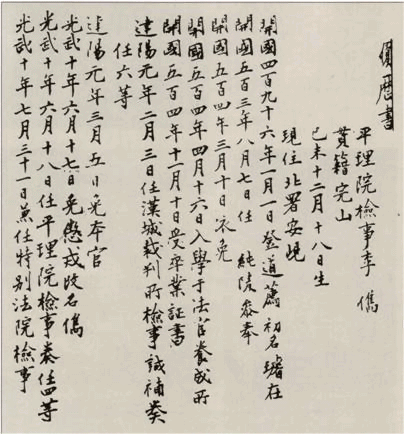 履歷書
平理院檢事李 儁
貫籍完山
己未十二月十八日生
現住北署安峴
開國四百九十六年一月一日登道薦初名璿在
開國五百三年八月七日任 純陵參奉
開國五百四年三月十日依免
開國五百四年四月十六日入學于法官養成所
開國五百四年十一月十日受卒業証書
建陽元年二月三日任漢城裁判所檢事試補奏
任六等
建陽元年三月五日免本官
光武十年六月十七日免懲戒改名儁
光武十年六月十八日任平理院檢事奏任四等
光武十年七月三十一日兼任特別法院檢事